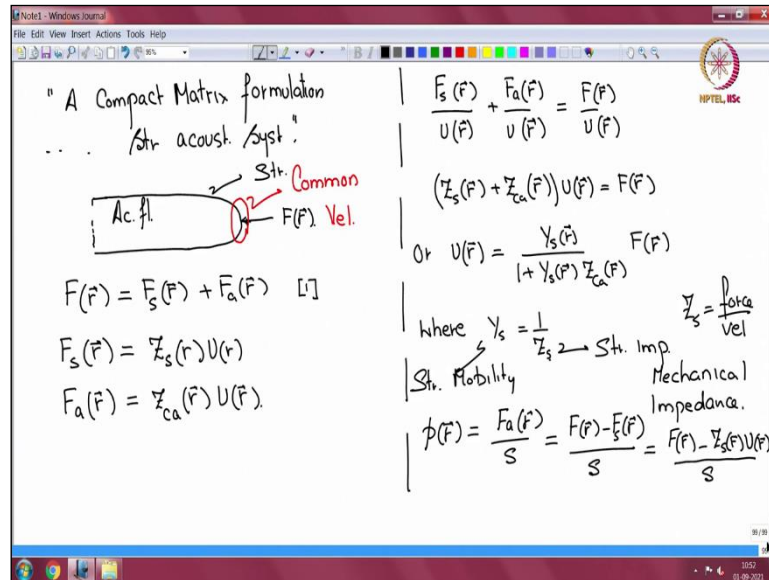 Note1 - Windows Journal
File Edit View Insert Actions Tools Help
95%
NPTEL, IISc
" A Compact Matrix formulation
.... Str acoust. Syst."
Str.
Common
Ac. fl.
F(r⃗). Vel.
F(r⃗) = F_s(r⃗) + F_a(r⃗) [1]
F_s(r⃗) = Z_s(r) U(r)
F_a(r⃗) = Z_ca(r⃗) U(r⃗).
F_s(r⃗)/U(r⃗) + F_a(r⃗)/U(r⃗) = F(r⃗)/U(r⃗)
(Z_s(r⃗) + Z_ca(r⃗)) U(r⃗) = F(r⃗)
Or U(r⃗) = Y_s(r⃗)/(1 + Y_s(r⃗) Z_ca(r⃗)) F(r⃗)
Z_s = force/vel
Where Y_s = 1/Z_s Str. Imp.
Str. Mobility
Mechanical
Impedance.
p(r⃗) = F_a(r⃗)/S = (F(r⃗) - F_s(r⃗))/S = (F(r⃗) - Z_s(r⃗) U(r⃗))/S
99/99
10:52
01-09-2021